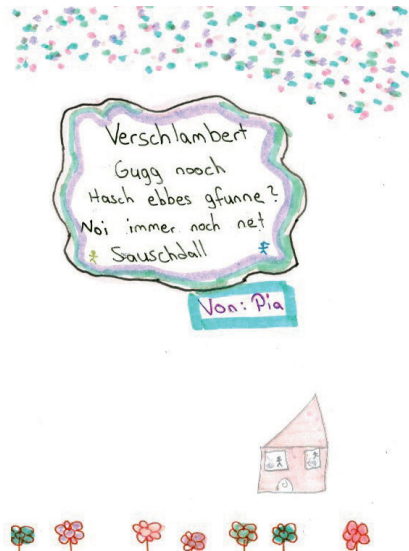 Verschlambert
Gugg nooch
Hasch ebbes gfunne?
Noi immer noch net
Sauschdall
Von: Pia